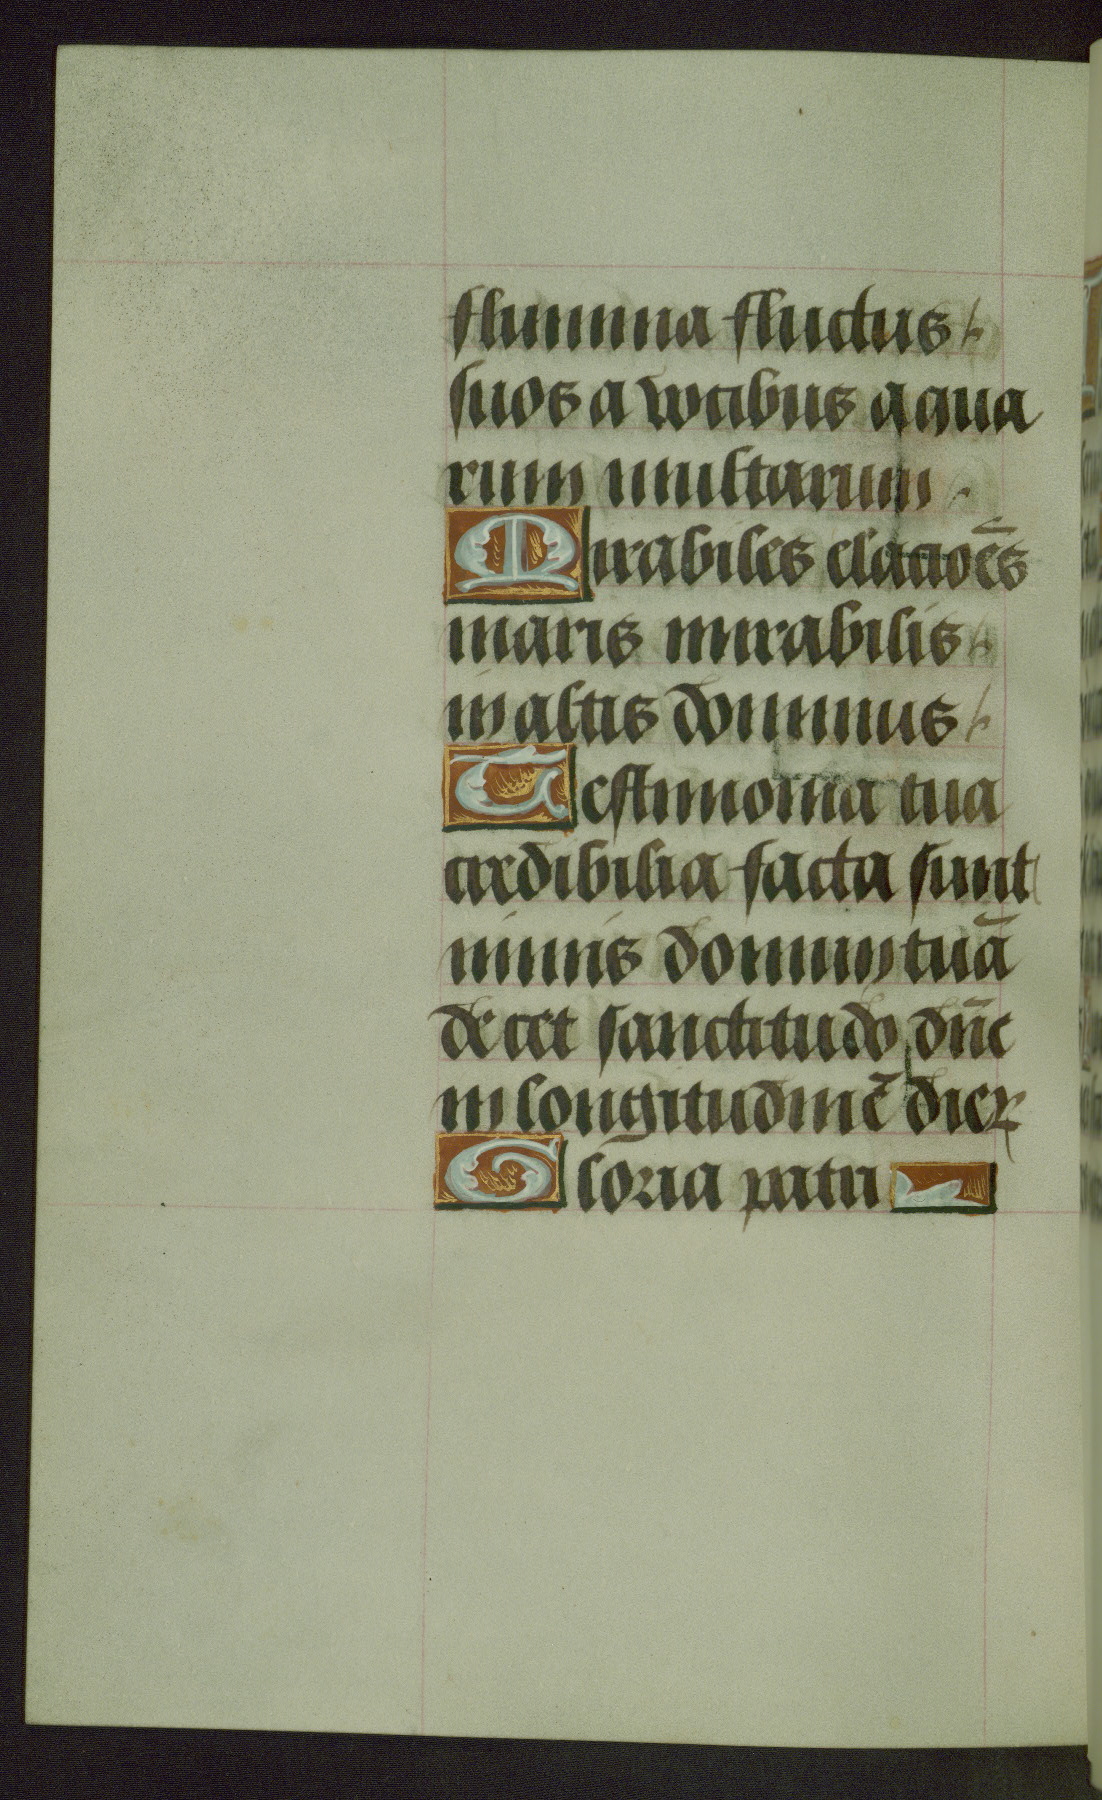 flumina fluctus
suos a vocibus aqua
rum multarum
Mirabiles elatiōēs
maris mirabilis
in altis dominus
Testimonia tua
credibilia facta sunt
nimis domum tuā
decet sanctitudo dn̄e
in longitudinē dieꝝ
Gloria patri